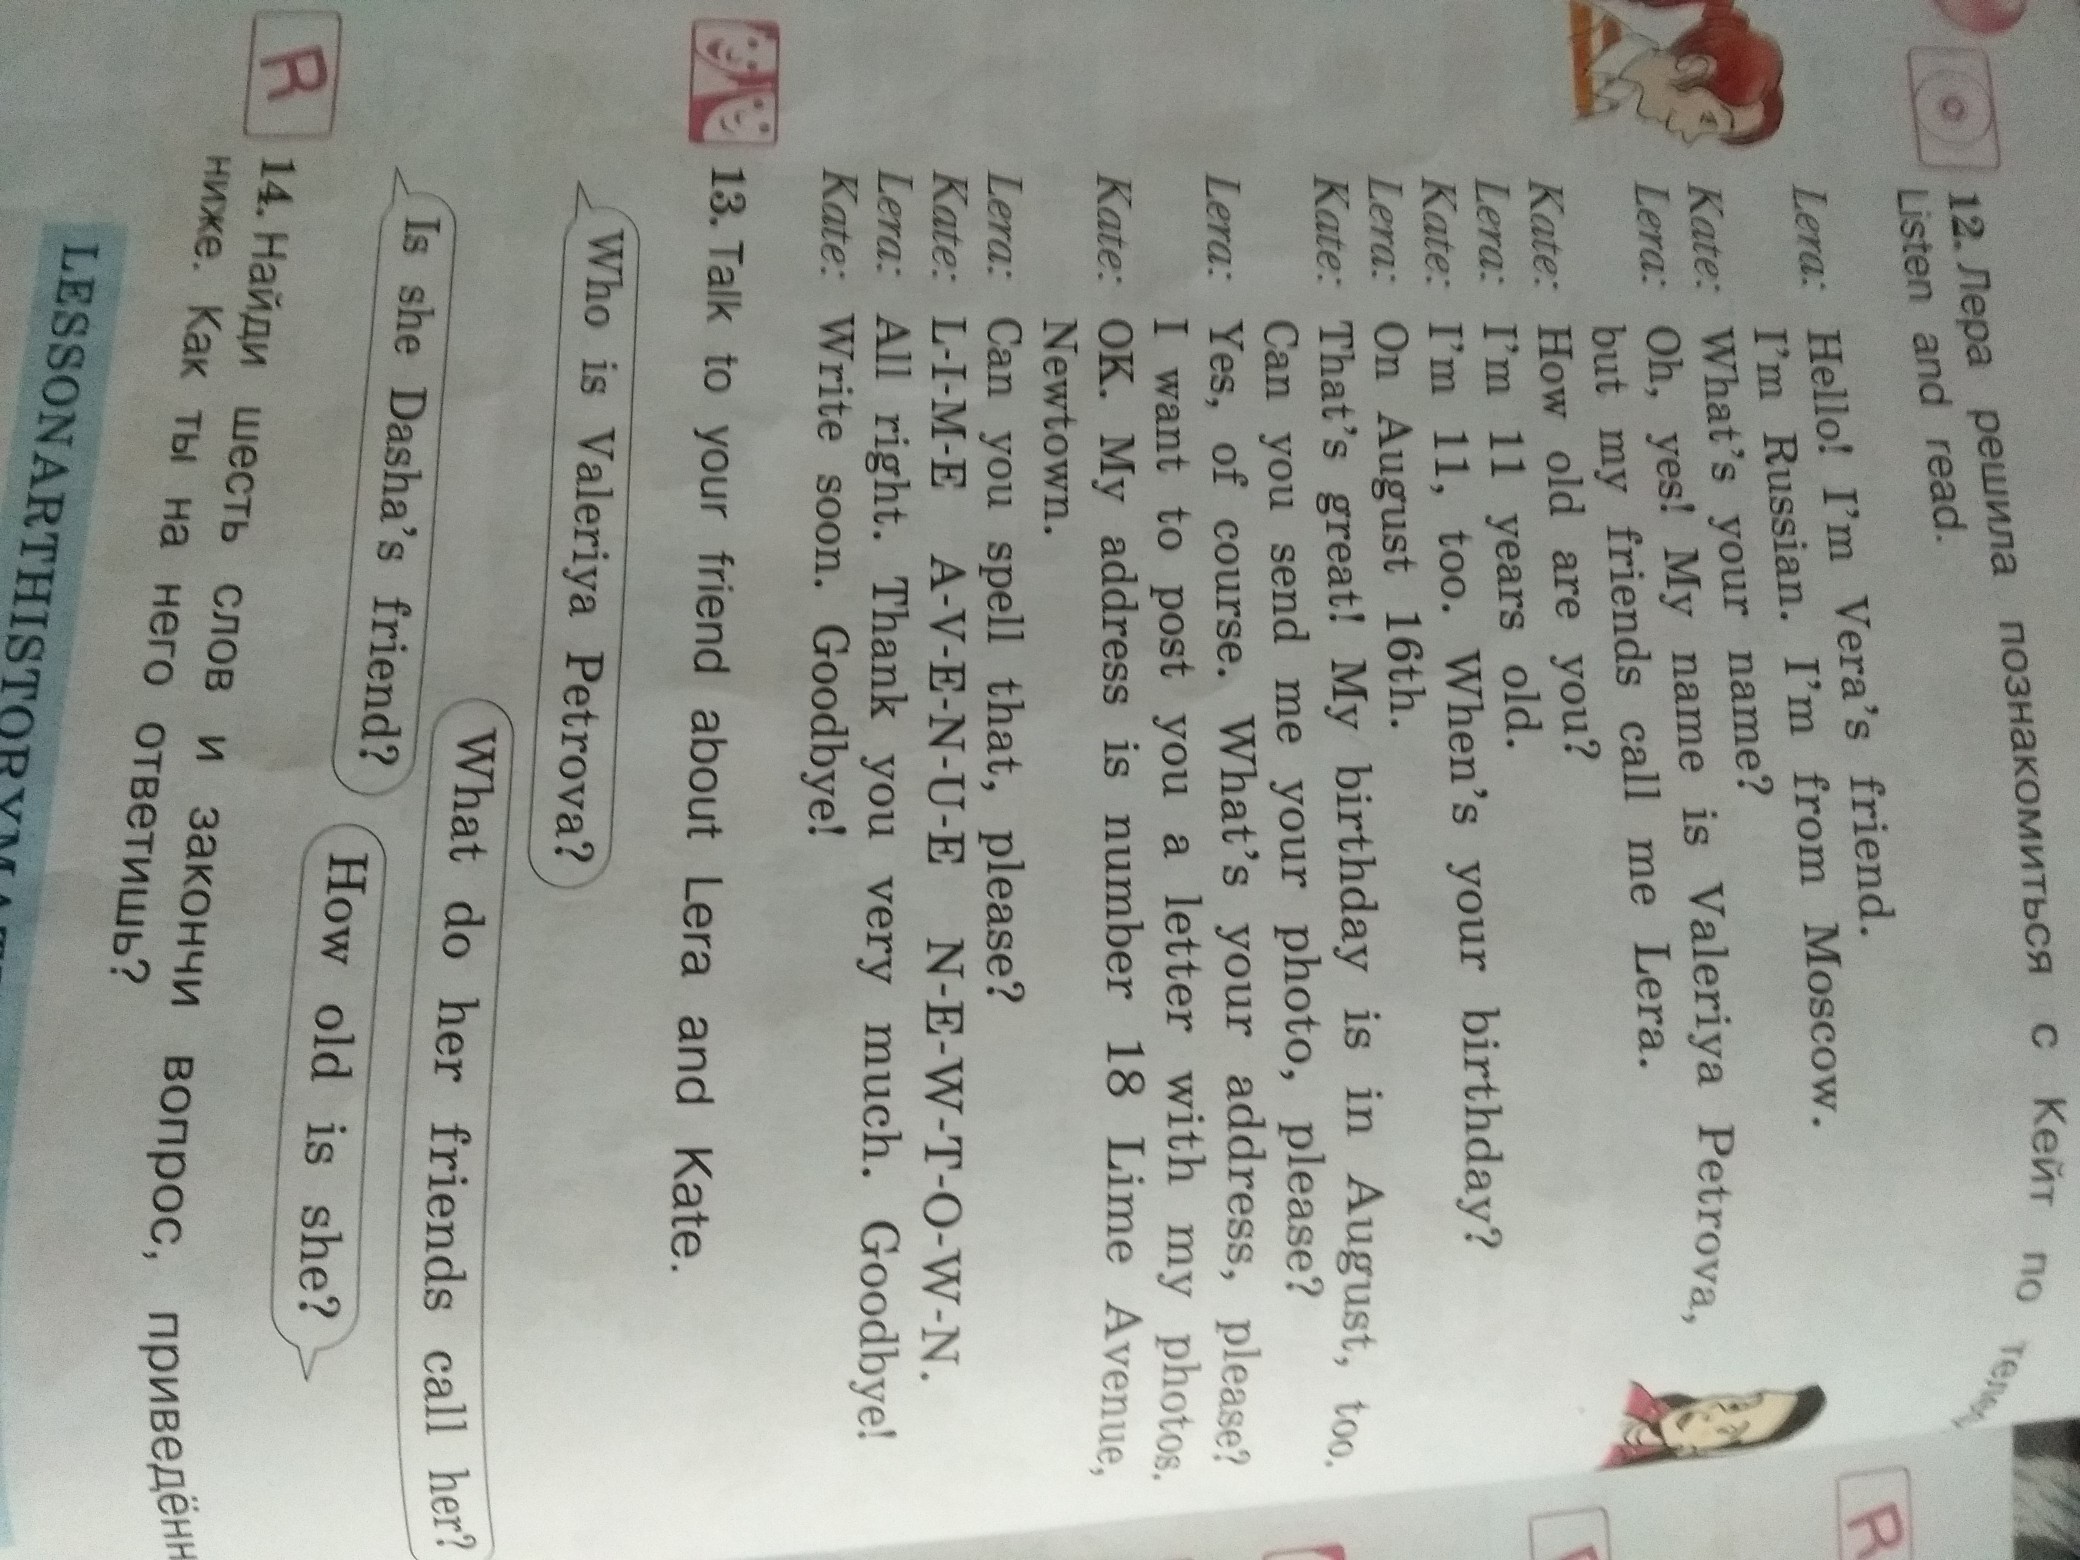 12. Лера решила познакомиться с Кейт по
Listen and read.
Lera: Hello! I'm Vera's friend.
I'm Russian. I'm from Moscow.
Kate: What's your name?
Lera: Oh, yes! My name is Valeriya Petrova,
but my friends call me Lera.
Kate: How old are you?
Lera: I'm 11 years old.
Kate: I'm 11, too. When's your birthday?
Lera: On August 16th.
Kate: That's great! My birthday is in August, too.
Can you send me your photo, please?
Lera: Yes, of course. What's your address, please?
I want to post you a letter with my photos.
Kate: OK. My address is number 18 Lime Avenue,
Newtown.
Lera: Can you spell that, please?
Kate: L-I-M-E A-V-E-N-U-E N-E-W-T-O-W-N.
Lera: All right. Thank you very much. Goodbye!
Kate: Write soon. Goodbye!
13. Talk to your friend about Lera and Kate.
Who is Valeriya Petrova?
What do her friends call her?
Is she Dasha's friend?
How old is she?
R
14. Найди шесть слов и закончи вопрос,
ниже. Как ты на него ответишь?
LESSONARTHISTORYMAT
R